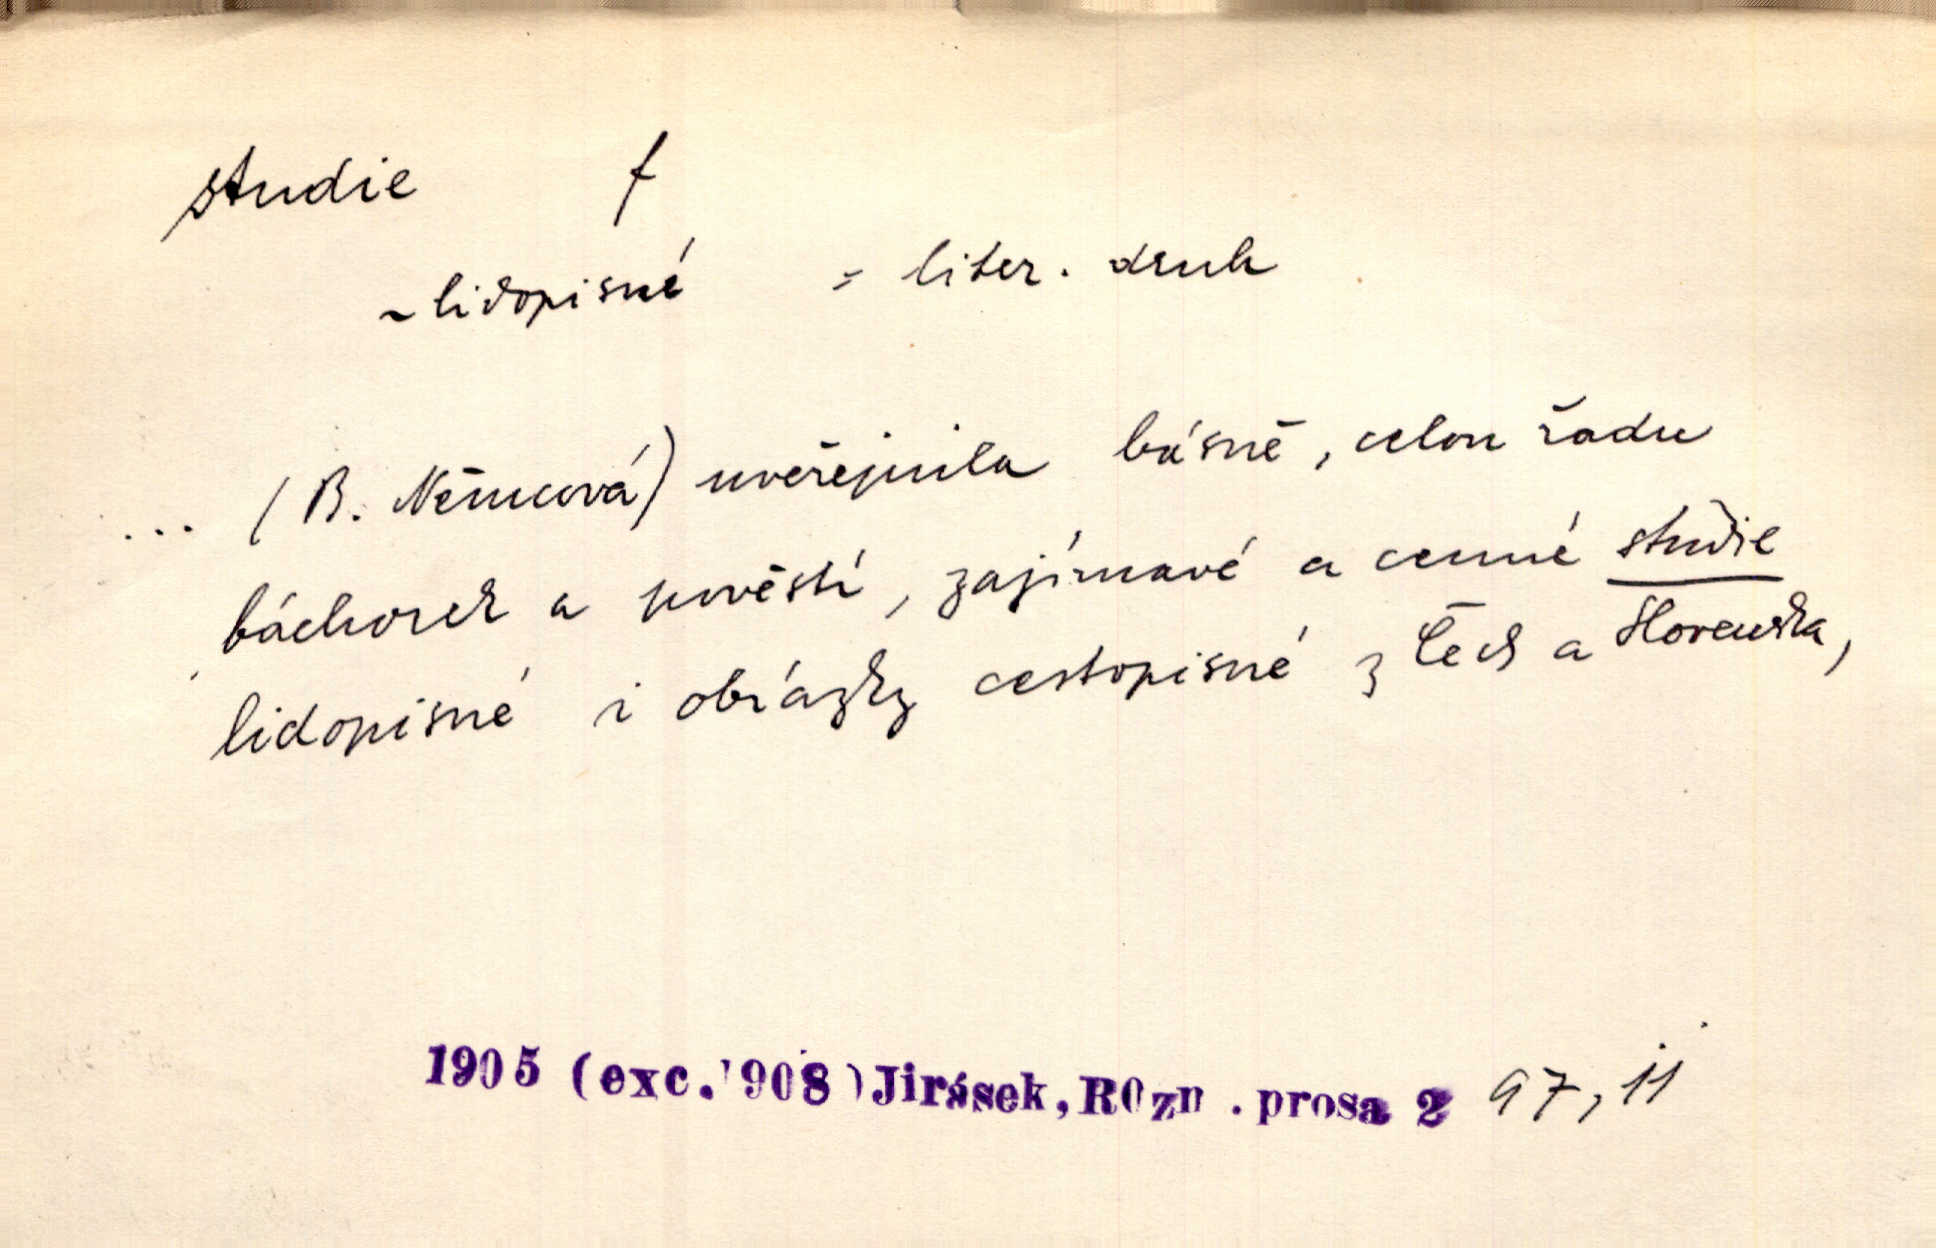 studie f
~ lidopisné = liter. druh
... (B. Němcová) uveřejnila básně, celou řadu
báchorek a pověstí, zajímavé a cenné studie
lidopisné i obrázky cestopisné z Čech a Slovenska,
1905 (exc.'908)Jirásek,ROzn.prosa 2 97,11